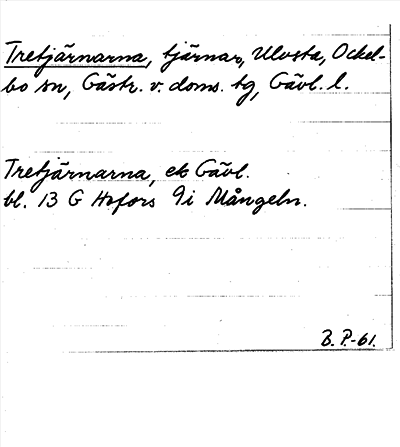 Tretjärnarna, tjärnar, Ulvsta, Ockel-
bo sn, Gästr. v. doms. tg, Gävl. l.
Tretjärnarna, ek Gävl.
bl. 13 G Hofors 9i Mångeln.
B. P.-61.